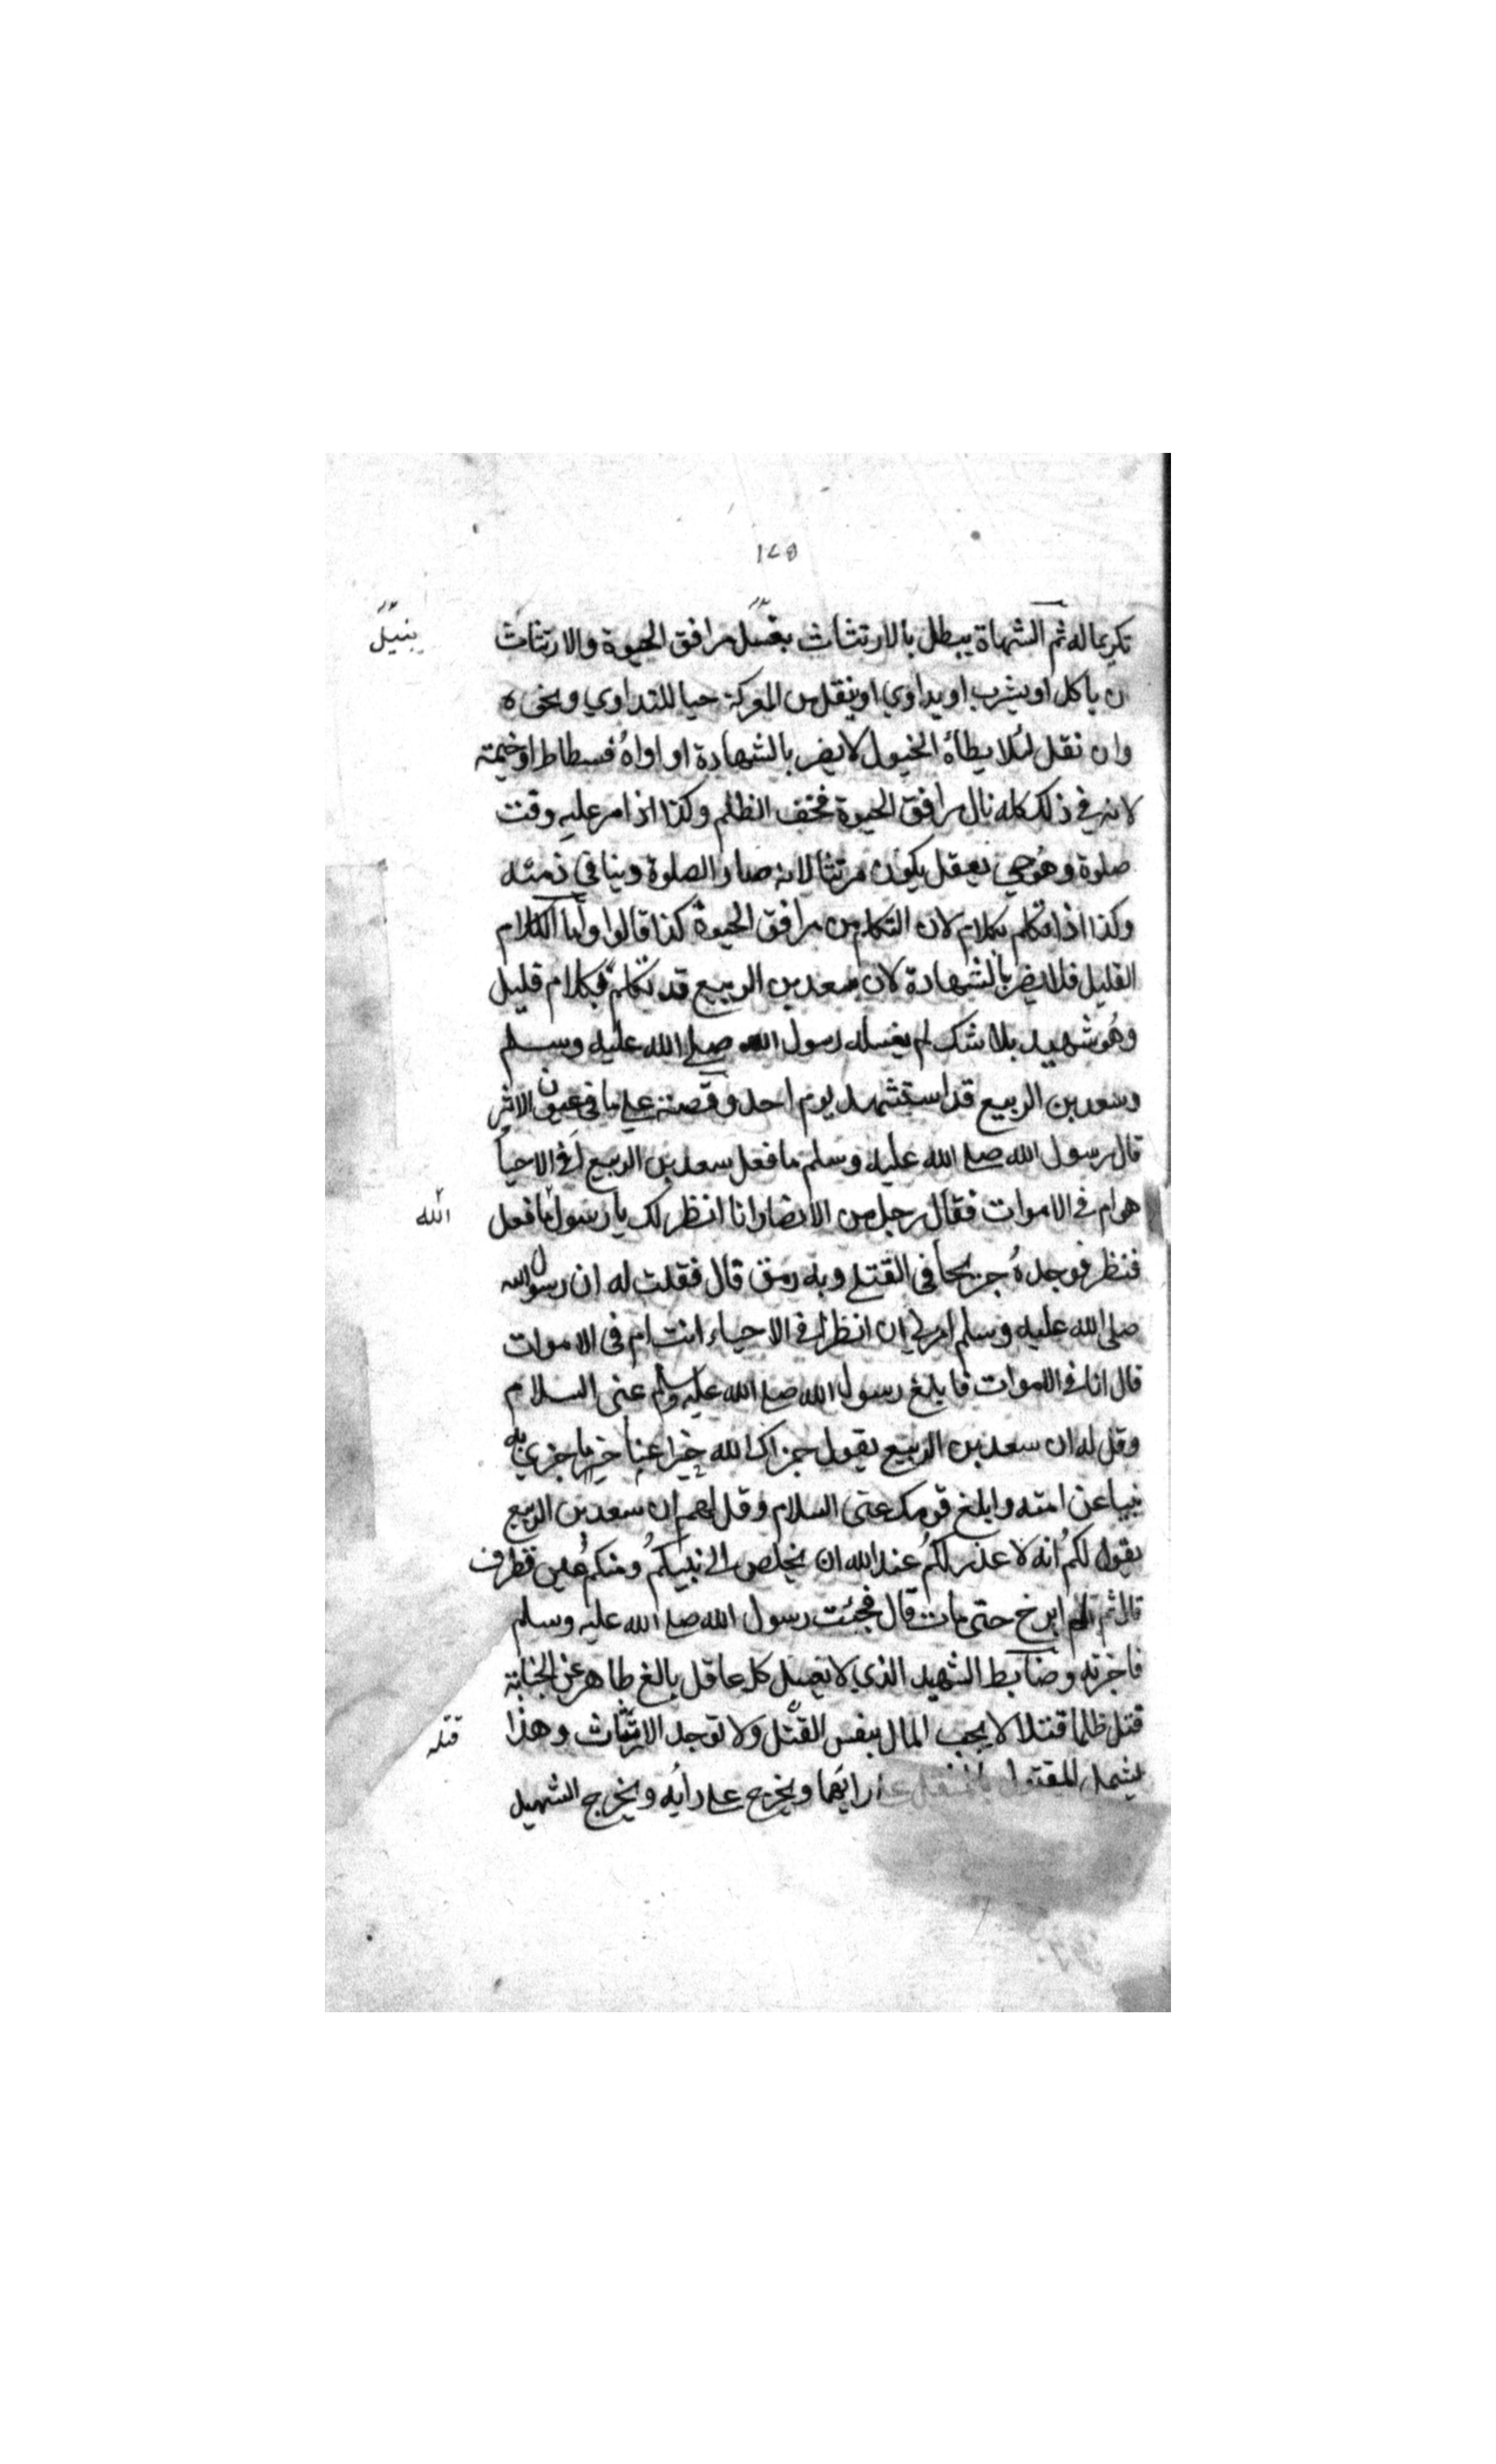 ١٤٥
تكريما له ثم الشهاة يبطل بالارتثاث بغسل مرافق الحيوة والارتثاث
بنيل
ن ياكل او يشرب او يداوي او ينقل من المعركة حيا للتداوي ونحوه
وان نقل لئلا يطأه الخيول لا يضر بالشهادة او اواه فسطاط او خيمة
لانه في ذلك كله نال مرافق الحيوة فخف الظلم وكذا اذا مر عليه وقت
صلوة وهو حي يعقل يكون مرتثا لانه صار الصلوة دينا في ذمته
وكذا اذا تكلم بكلام لان التكلم من مرافق الحيوة كذا قالوا واما الكلام
القليل فلا يضر بالشهادة لان سعد بن الربيع قد تكلم بكلام قليل
وهو شهيد بلا شك لم يغسله رسول الله صلى الله عليه وسلم
وسعد بن الربيع قد استشهد يوم احد وقصته على ما في عيون الاثر
قال رسول الله صلى الله عليه وسلم ما فعل سعد بن الربيع افي الاحيا
هو ام في الاموات فقال رجل من الانصار انا انظر لك يا رسول ما فعل
الله
فنظر فوجده جريحا في القتلى وبه رمق قال فقلت له ان رسول الله
صلى الله عليه وسلم امرني ان انظر افي الاحياء انت ام في الاموات
قال انا في الاموات فابلغ رسول الله صلى الله عليه وسلم عنى السلام
وقل له ان سعد بن الربيع يقول جزاك الله خيرا عنا خير ما جزي به
نبيا عن امته وابلغ قومك عنى السلام وقل لهم ان سعد بن الربيع
يقول لكم انه لا عذر لكم عند الله ان يخلص الى نبيكم ومنكم عين تطرف
قال ثم لم ابرح حتى مات قال فجئت رسول الله صلى الله عليه وسلم
فاخبرته وضابط الشهيد الذي لا يغسل كل عاقل بالغ طاهر عن الجنابة
قتل ظلما قتلا لا يجب المال بنفس القتل ولا توجد الارتثاث وهذا
قتله
يشمل المقتول بالمثقل على رايهما ويخرج على رأيه ويخرج الشهيد